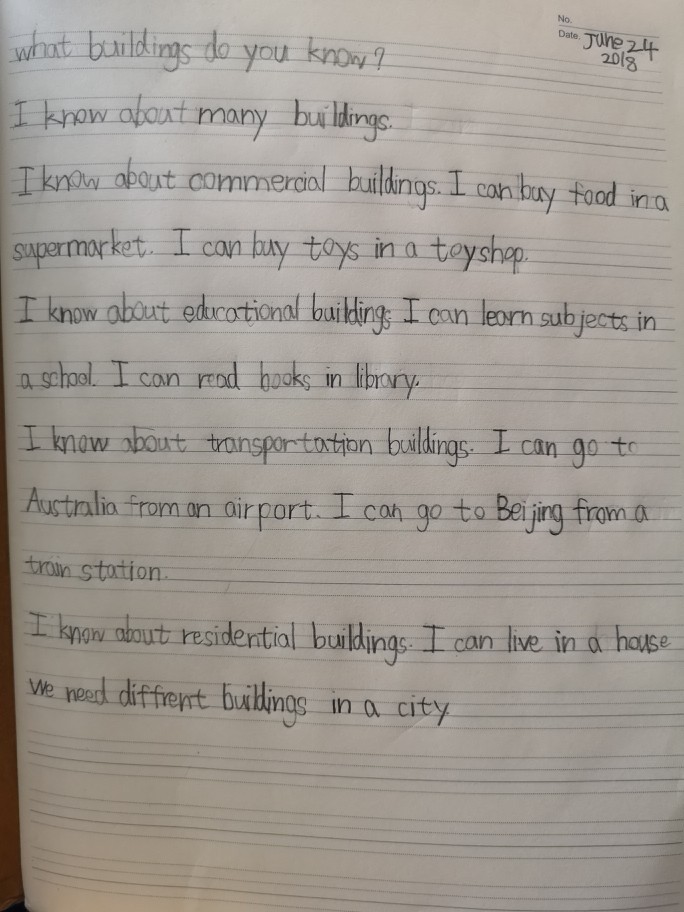 No.
Date. June 24
2018
what buildings do you know?
I know about many buildings.
I know about commercial buildings. I can buy food in a
supermarket. I can buy toys in a toyshop.
I know about educational buildings I can learn subjects in
a school. I can read books in library.
I know about transportation buildings. I can go to
Australia from an airport. I can go to Beijing from a
train station.
I know about residential buildings. I can live in a house
We need diffrent buildings in a city